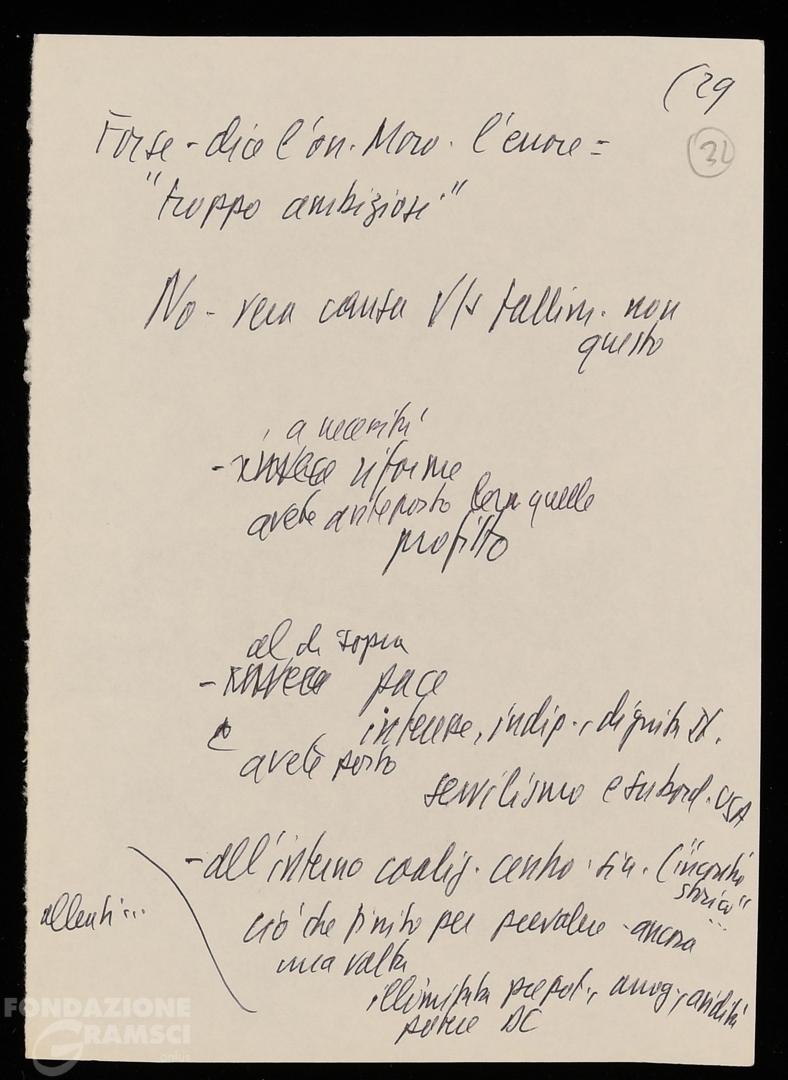 (29
32
Forse - dice l'on. Moro - l'errore =
"troppo ambiziosi"
No - vera causa v/s fallim. non
questo
a necessità
- riforme
avete anteposto quelle
profitto
al di sopra
- invece pace
e interesse, indip., dignità It.
avete posto
servilismo e subord. USA
- all'interno coaliz. centro-sin. ("incontro
storico"
allenti...
ciò che finito per prevalere - ancora
una volta
illimitata prepot., arrog., avidità
potere DC
FONDAZIONE
GRAMSCI
onlus